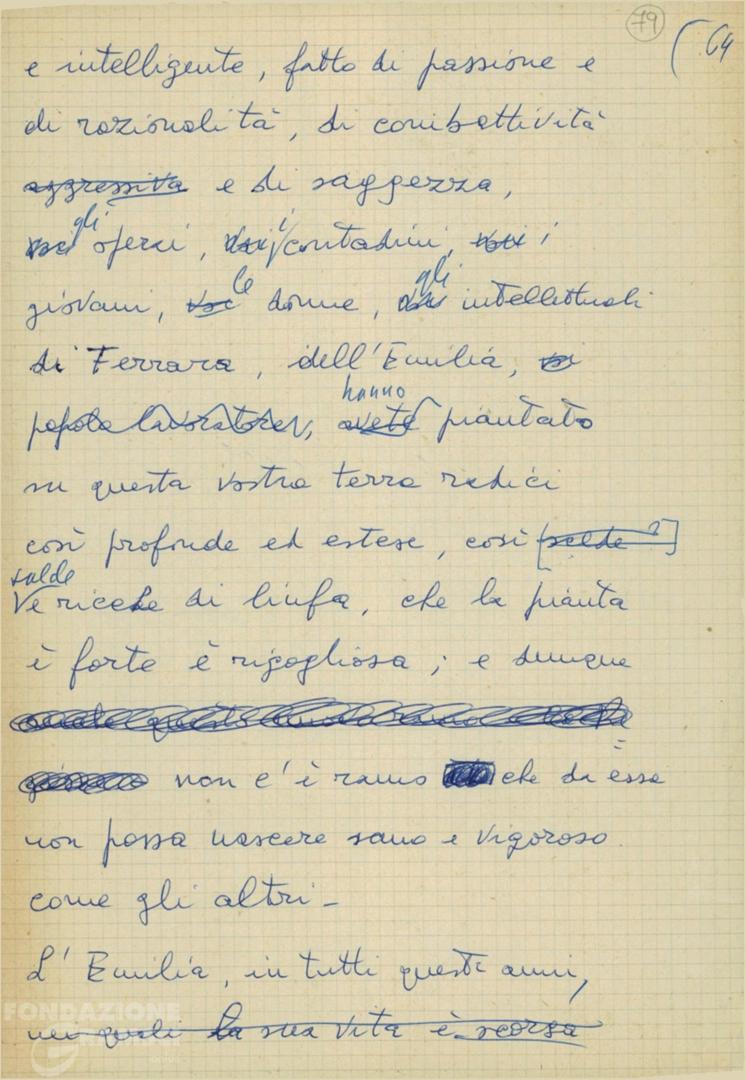 79
64
e intelligente, fatto di passione e
di razionalità, di combattività
aggressiva e di saggezza,
voi gli operai, voi i contadini, voi i
giovani, voi le donne, voi gli intellettuali
di Ferrara, dell'Emilia,
popolo lavoratore, avete hanno piantato
su questa vostra terra radici
così profonde ed estese, così [salde?]
salde
e ricche di linfa, che la pianta
è forte è rigogliosa; e dunque
non c'è ramo che da essa
non possa nascere sano e vigoroso
come gli altri –
L'Emilia, in tutti questi anni,
nei quali la sua vita è scorsa
FONDAZIONE